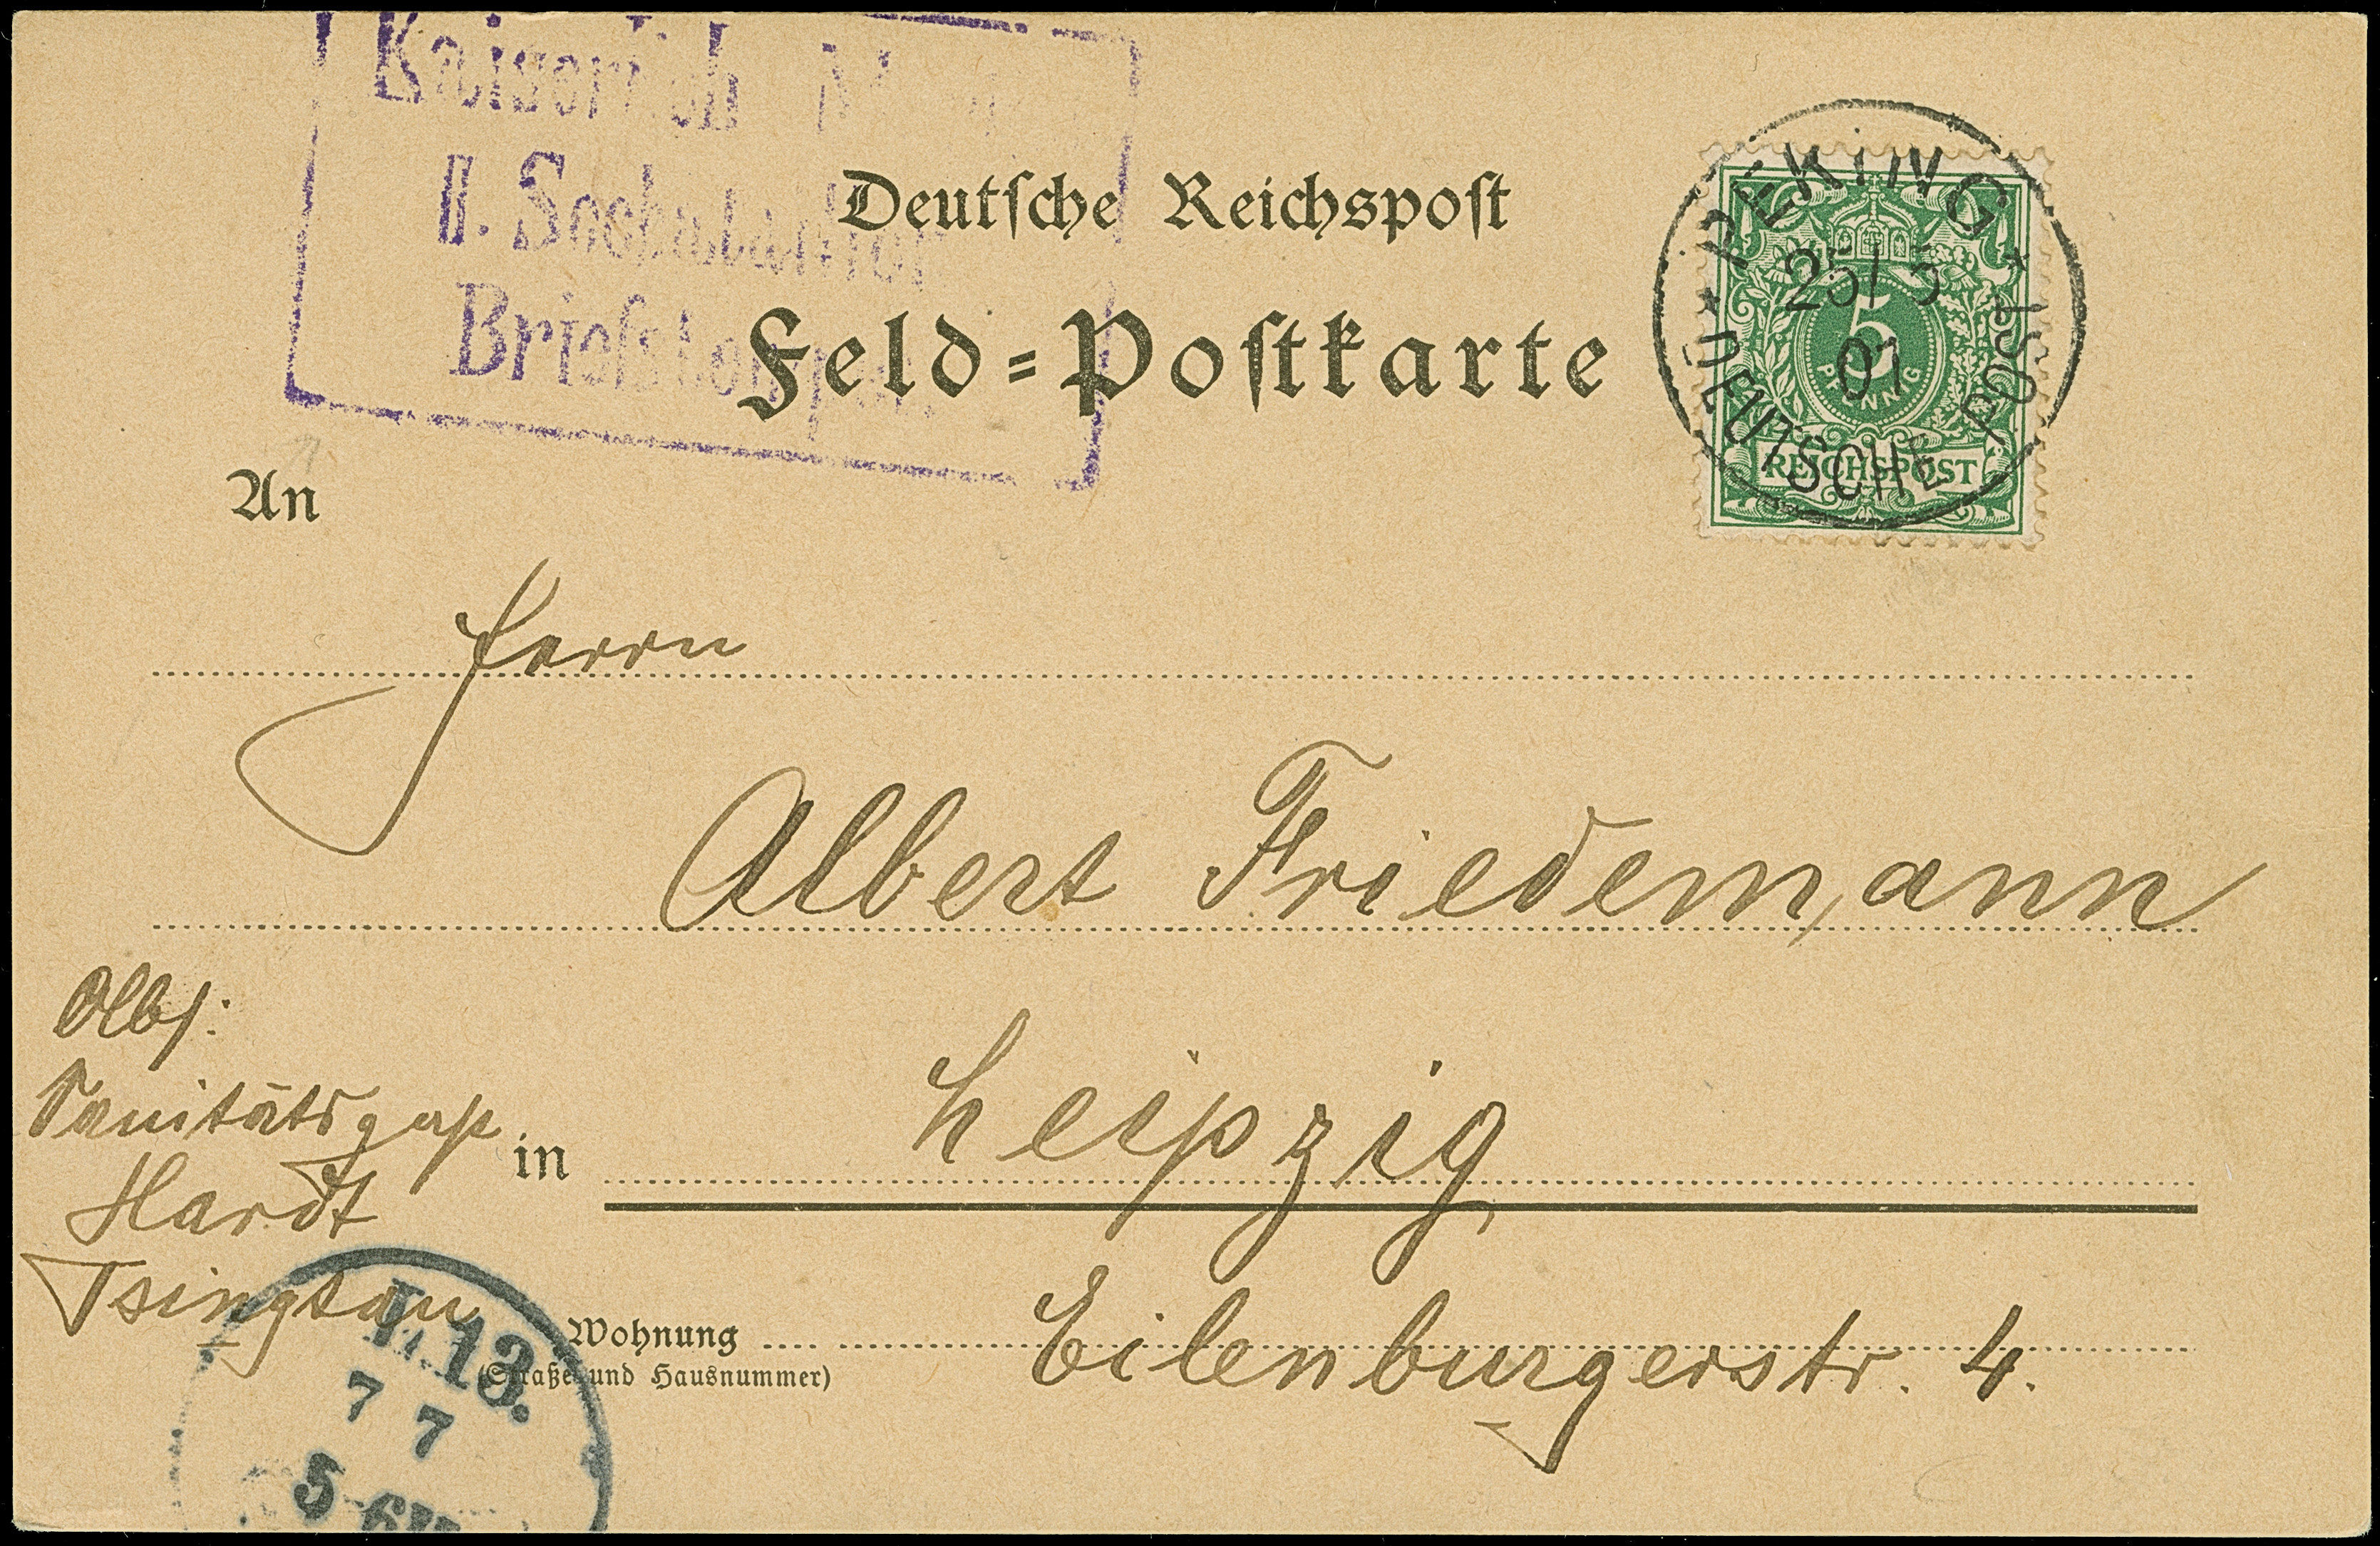 Kaiserlich
II. Seebataillon
Briefstempel
Deutſche Reichspoſt
Feld=Poſtkarte
PEKING
25/5
01
DEUTSCHE POST
5
PFENNIG
REICHSPOST
An
Herrn
Albert Friedemann
Abs:
Sanitätsgast
Hardt
Tsingtau
in Leipzig
Wohnung Eilenburgerstr. 4.
(Straße und Hausnummer)
L. 13.
7 7
5